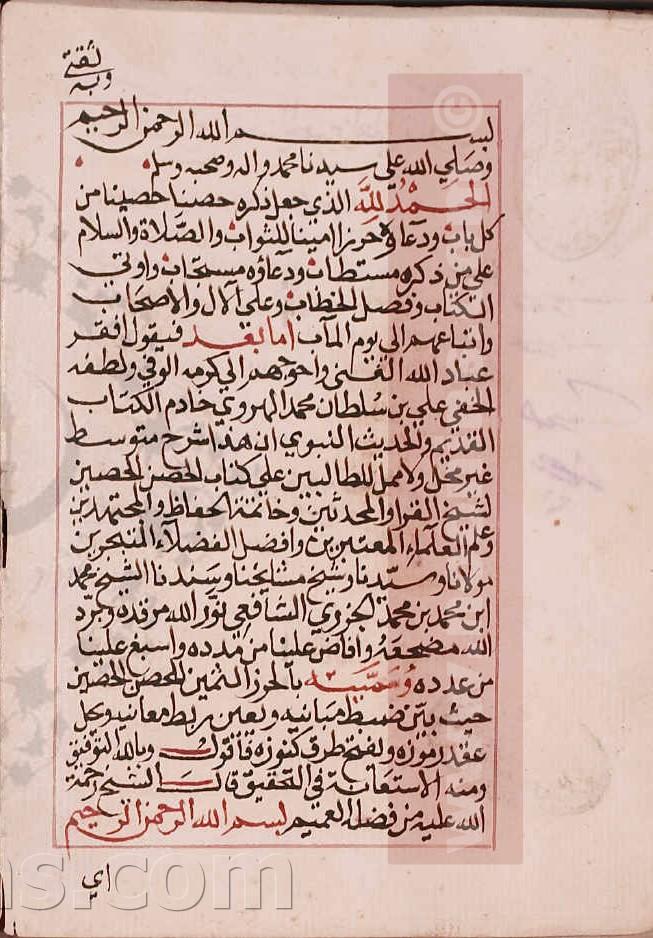 وبه
ثقتي
بسم الله الرحمن الرحيم
وصلي الله علي سيدنا محمد واله وصحبه وسلم
الحمد لله الذي جعل ذكره حصنا حصينا من
كل باب ودعاؤه حرزا امينا للثواب والصلاة والسلام
علي من ذكره مستطاب ودعاؤه مستجاب واوتي
الكتاب وفصل الخطاب وعلي الال والاصحاب
واتباعهم الي يوم المآب اما بعد فيقول افقر
عباد الله الغني واحوجهم الي كرمه الوفي ولطفه
الخفي علي بن سلطان محمد الهروي خادم الكتاب
القديم والحديث النبوي ان هذا شرح متوسط
غير مخل ولا ممل للطالبين علي كتاب الحصن الحصين
لشيخ القرا والمحدثين وخاتمة الحفاظ والمجتهدين
وعلم العلماء المعتبرين وافضل الفضلاء المتبحرين
مولانا وسيدنا وشيخ مشايخنا وسندنا الشيخ محمد
ابن محمد بن محمد الجزري الشافعي نور الله مرقده وبرد
الله مضجعه وافاض علينا من مدده واسبغ علينا
من عدده وسميته بالحرز الثمين للحصن الحصين
حيث يتبين ضبط مبانيه ويعين ربط معانيه ويحل
عقد رموزه ويفتح طرق كنوزه فاقول وبالله التوفيق
ومنه الاستعانة في التحقيق قال الشيخ رحمة
الله عليه من فضله العميم بسم الله الرحمن الرحيم
اي
ns.com